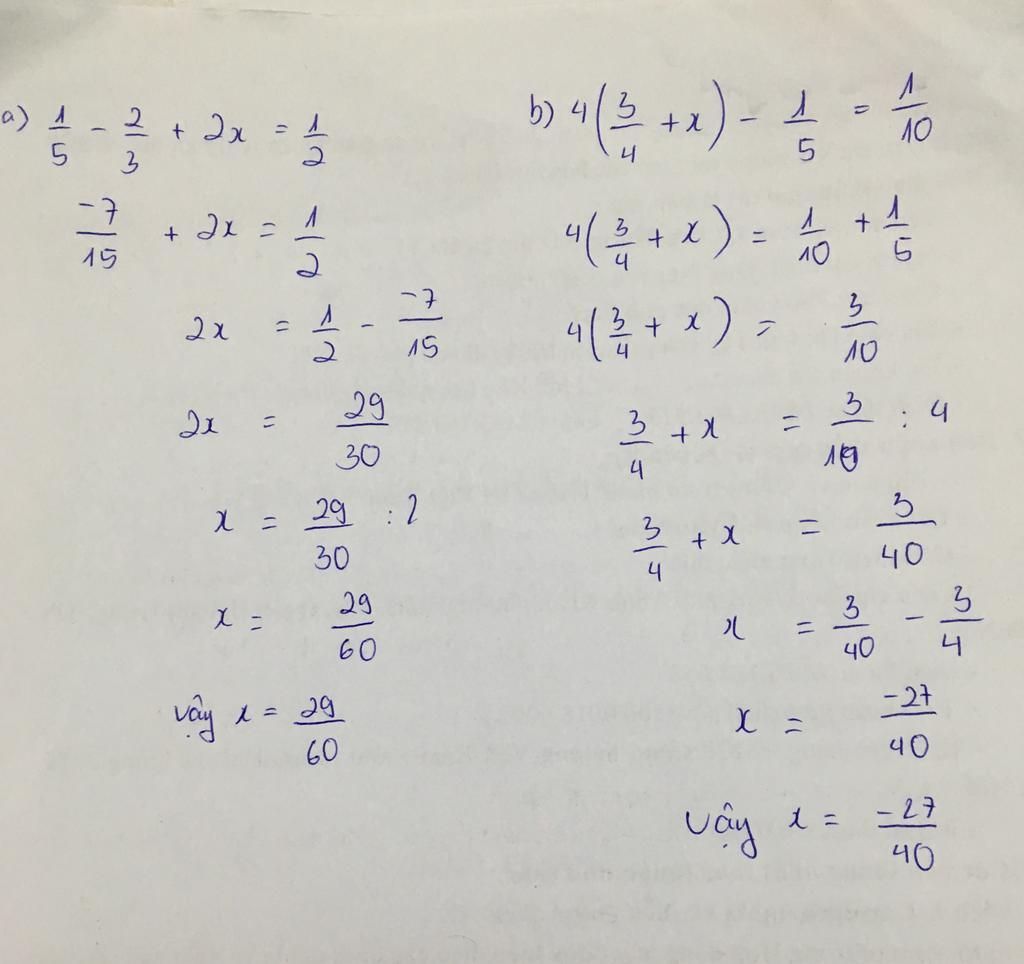 a) 1/5 - 2/3 + 2x = 1/2
-7/15 + 2x = 1/2
2x = 1/2 - -7/15
2x = 29/30
x = 29/30 : 2
x = 29/60
Vậy x = 29/60
b) 4(3/4 + x) - 1/5 = 1/10
4(3/4 + x) = 1/10 + 1/5
4(3/4 + x) = 3/10
3/4 + x = 3/10 : 4
3/4 + x = 3/40
x = 3/40 - 3/4
x = -27/40
Vậy x = -27/40